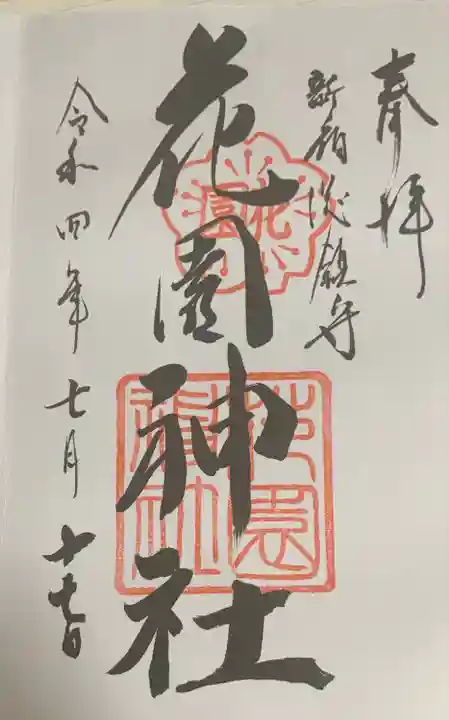 奉拝
新宿総鎮守
花園神社
花園
花園神社
令和四年七月十七日